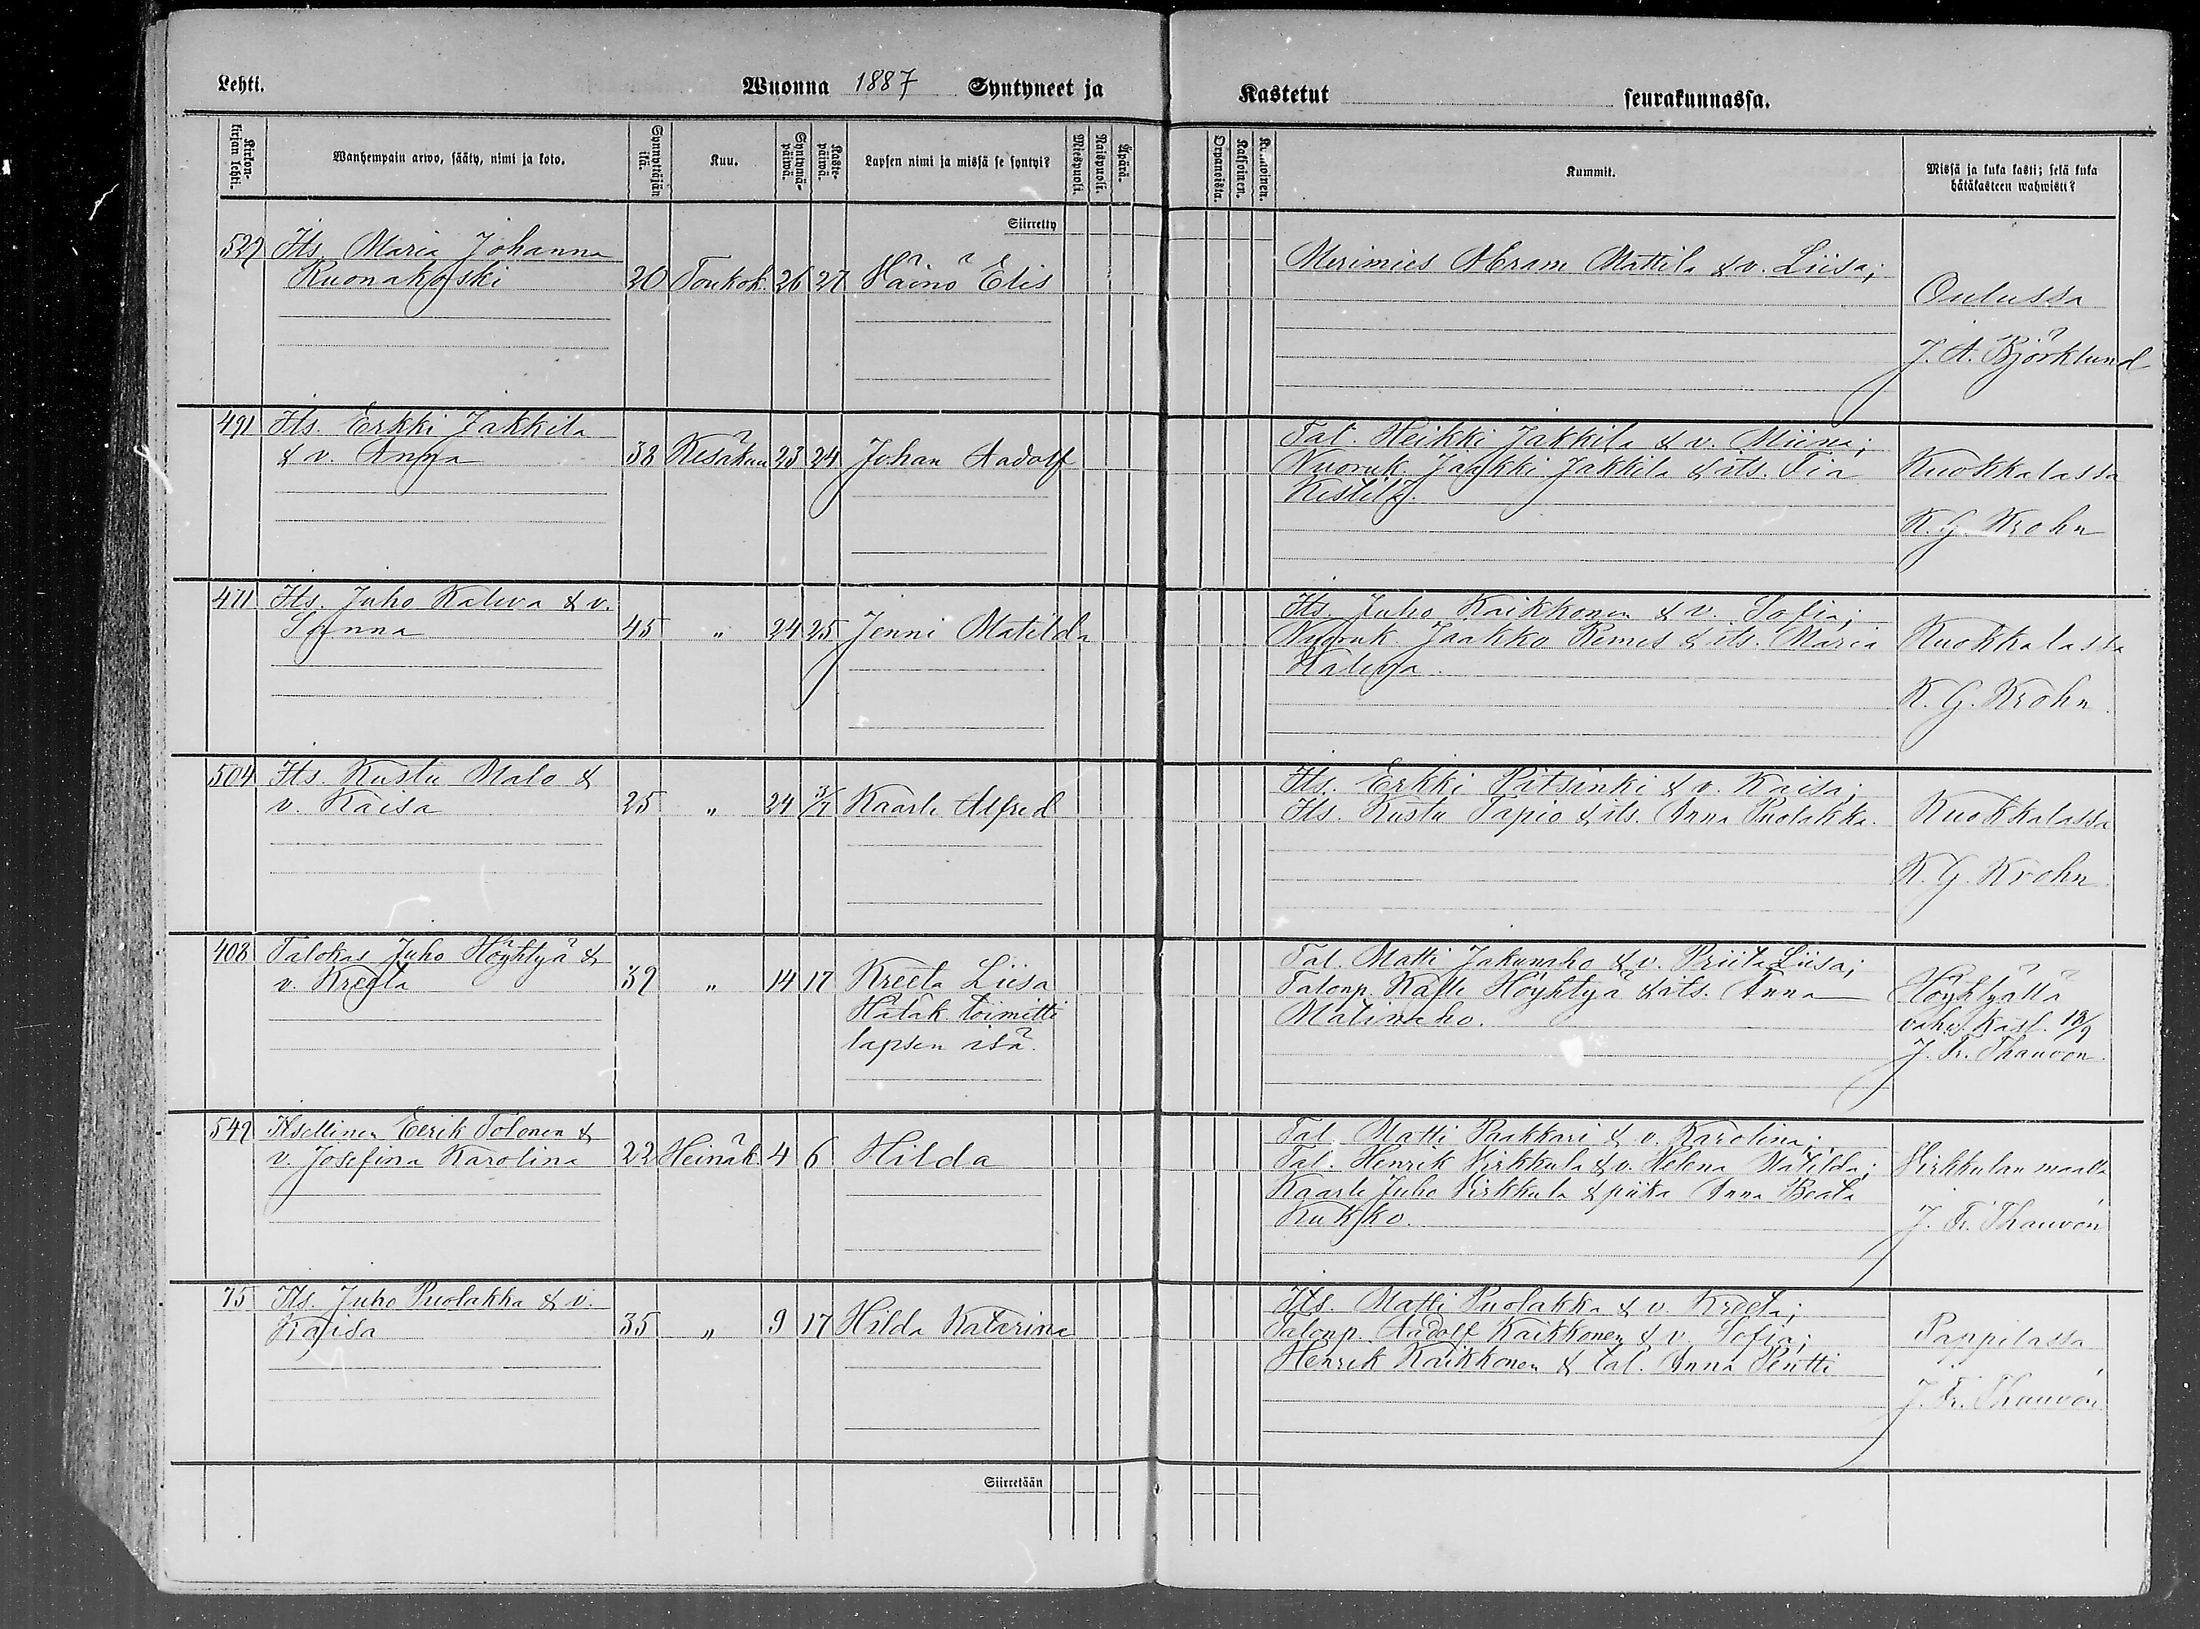 Lehti.
Wuonna 1887 Syntyneet ja
Kastetut seurakunnassa.
Kirkon-kirjan lehti.
Wanhempain arwo, sääty, nimi ja koto.
Synnyttäjän ikä.
Kuu.
Syntymä-päiwä.
Kaste-päiwä.
Lapsen nimi ja missä se syntyi?
Miespuoli.
Naispuoli.
Äpärä.
Orpanoista.
Kaksoinen.
Kummit.
Missä ja kuka kasti; sekä kuka
hätäkasteen wahwisti?
Siirretty
529 Its. Maria Johanna
Ruonakoski 20 Toukok. 26 27 Väinö Elis
Merimies Abram Mattila & v. Liisa;
Oulussa
J. A. Björklund
491 Its. Erkki Jakkila
& v. Anna 38 Kesäkuu 23 24 Johan Aadolf
Tal. Heikki Jakkila & v. Miina;
Nuoruk. Jaakki Jakkila & its. Fia
Kestilä.
Kuokkalassa
K. G. Krohn
471 Its. Juho Kaleva & v.
Sanna 45 „ 24 25 Jenni Matilda
Its. Juho Kaikkonen & v. Sofia;
Nuoruk. Jaakko Remes & its. Maria
Kaleva.
Kuokkalassa
K. G. Krohn
504 Its. Kustu Malo &
v. Kaisa 25 „ 24 3/7 Kaarle Alfred
Its. Erkki Pitsinki & v. Kaisa;
Its. Kustu Tapio & its. Anna Puolakka.
Kuokkalassa
K. G. Krohn
408 Talokas Juho Höyhtyä &
v. Kreeta 39 „ 14 17 Kreeta Liisa
Hätäk. toimitti
lapsen isä.
Tal. Matti Jakunaho & v. Priita Liisa;
Talonp. Kalle Höyhtyä & its. Anna
Matinaho.
Höyhtyällä
vahv. Kast.
J. Fr. Thauvon
549 Itsellinen Eerik Tolonen &
v. Josefina Karolina 22 Heinäk. 4 6 Hilda
Tal. Matti Paakkari & v. Karolina;
Tal. Henrik Virkkula & v. Helena Matilda;
Kaarle Juho Virkkula & piika Anna Beata
Kukko.
Virkkulan maalla
J. Fr. Thauvon
75 Its. Juho Puolakka & v.
Kaisa 35 „ 9 17 Hilda Katarina
Its. Matti Puolakka & v. Kreeta;
Talonp. Aadolf Kaikkonen & v. Sofia;
Henrik Kaikkonen & tal. Anna Pentti
Pappilassa
J. Fr. Thauvon
Siirretään